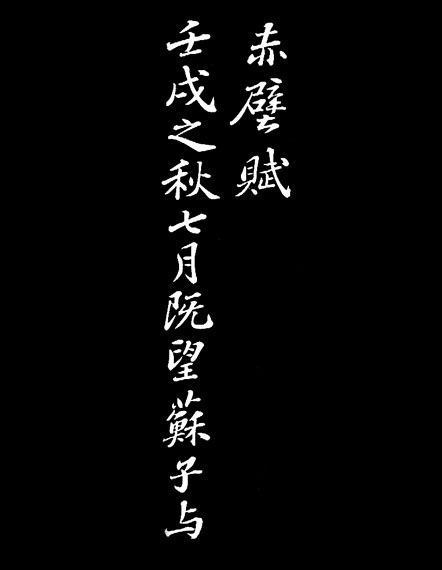 赤壁賦
壬戌之秋七月既望蘇子与